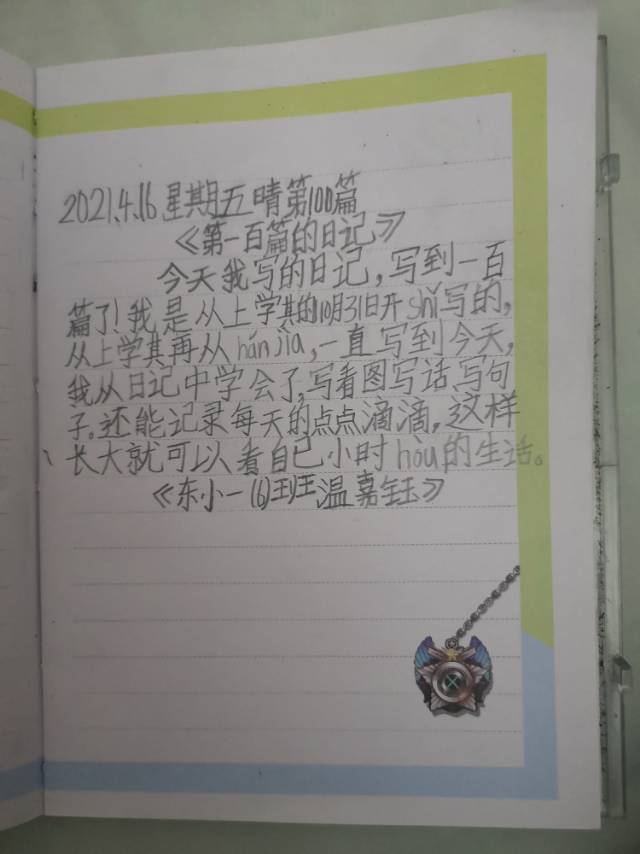 2021.4.16 星期五 晴 第100篇
《第一百篇的日记》
今天我写的日记,写到一百
篇了!我是从上学其的10月31日开shǐ写的,
从上学其再从hán jià,一直写到今天,
我从日记中学会了,写看图写话、写句
子。还能记录每天的点点滴滴,这样
长大就可以看自己小时hòu的生活。
《东小一(6)班 温嘉钰》